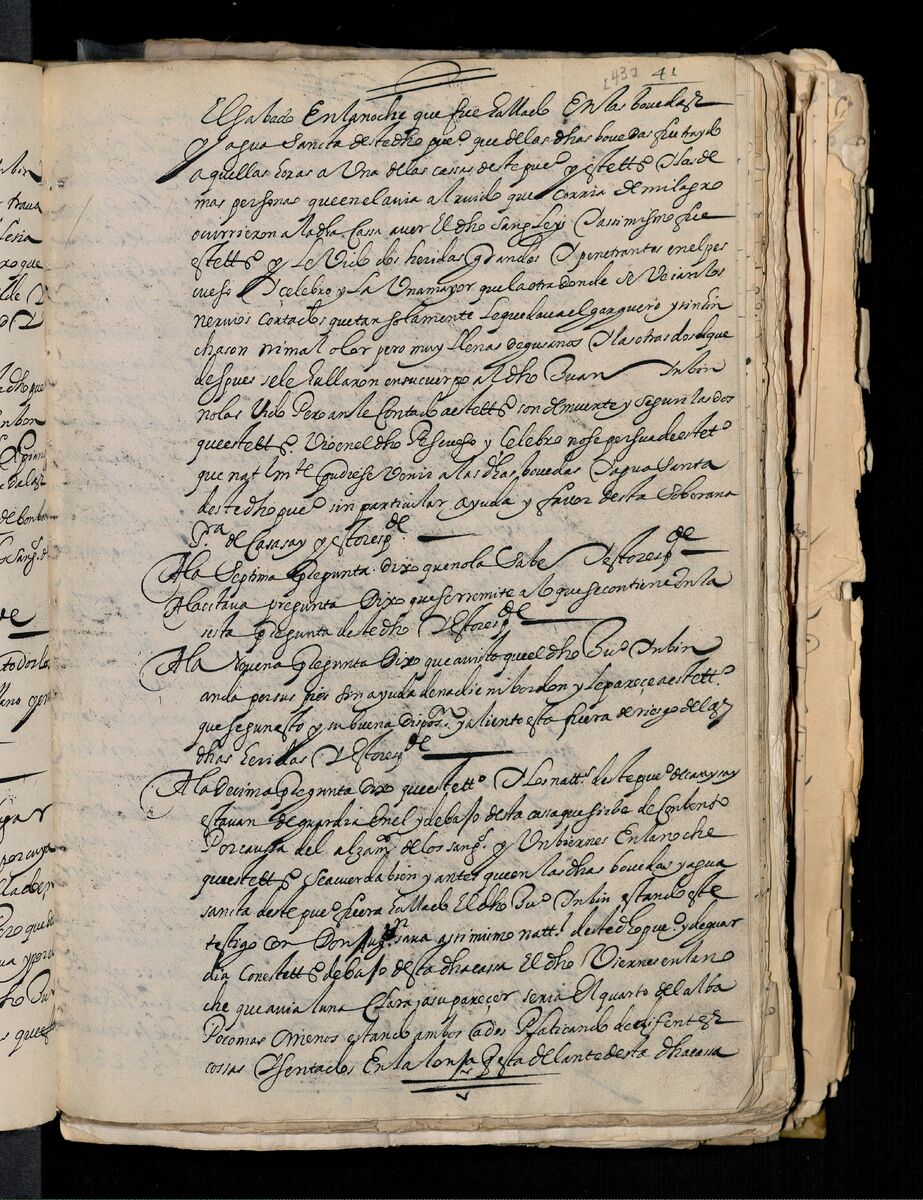 [43] 41
El sabado En la noche que fue hallado En las bovedas
y agua Sancta deste dho pueo que de las dhas bovedas fue traydo
a quellas horas a Una de las casas deste pueo y este tto y las de
mas personas que en el avia al ruido que corria de milagro
ocurrieron a la dha Cassa a ver El dho Sangley y assi mismo fue
este tto y Le Vido dos heridas grandes y penetrantes en el pes
cueso y celebro y La Una mayor que la otra donde se Veian los
nervios cortados que tan solamente le quedava el garguero y sin hin
chason ni mal olor pero muy llenas de gusanos y las otras dos que
despues se le hallaron en su cuerpo al dho Juan Inbin
no las Vido Pero an le Contado a este tto son de muerte y segun las dos
que este tto Vio en el dho Pescueso y Celebro no se persuade este to
que natlmte pudiese Venir a las dhas bovedas y agua Santa
deste dho pueo sin particular ayuda y favor desta Soberana
Sra de Casasay y esto respde
A la Septima Pregunta Dixo que no la Sabe y esto respde
A la octava pregunta Dixo que se rremite a lo que se contiene En la
sesta Pregunta deste dho y Esto respde
A la Novena Pregunta Dixo que a visto que el dho Juo Inbin
anda por sus pies sin ayuda de nadie ni bordon y le pareçe a este tto
que segun esto y su buena disposn y aliento esta fuera de riesgo de las
dhas heridas y Esto respde
A la Decima Pregunta Dixo que este tto y los natts deste pueo de casasay
estavan de guardia En el y debajo desta casa que sirbe de Convento
Por causa del alzamto de los sangs y Un biernes En la noche
que este tto se acuerda bien y antes que en las dhas bovedas y agua
sancta deste pueo fuera hallado El dho Juo Inbin estando este
testigo con Don Augn sava assimismo natt deste dho pueo y de guar
dia Con este tto debajo desta dha cassa El dho Viernes en la no
che que avia luna Clara ya su pareçer seria El quarto del alba
Poco mas o menos estando ambos a dos Platicando de diferentes
cossas Asentados En la lonja questa delante desta dha cassa